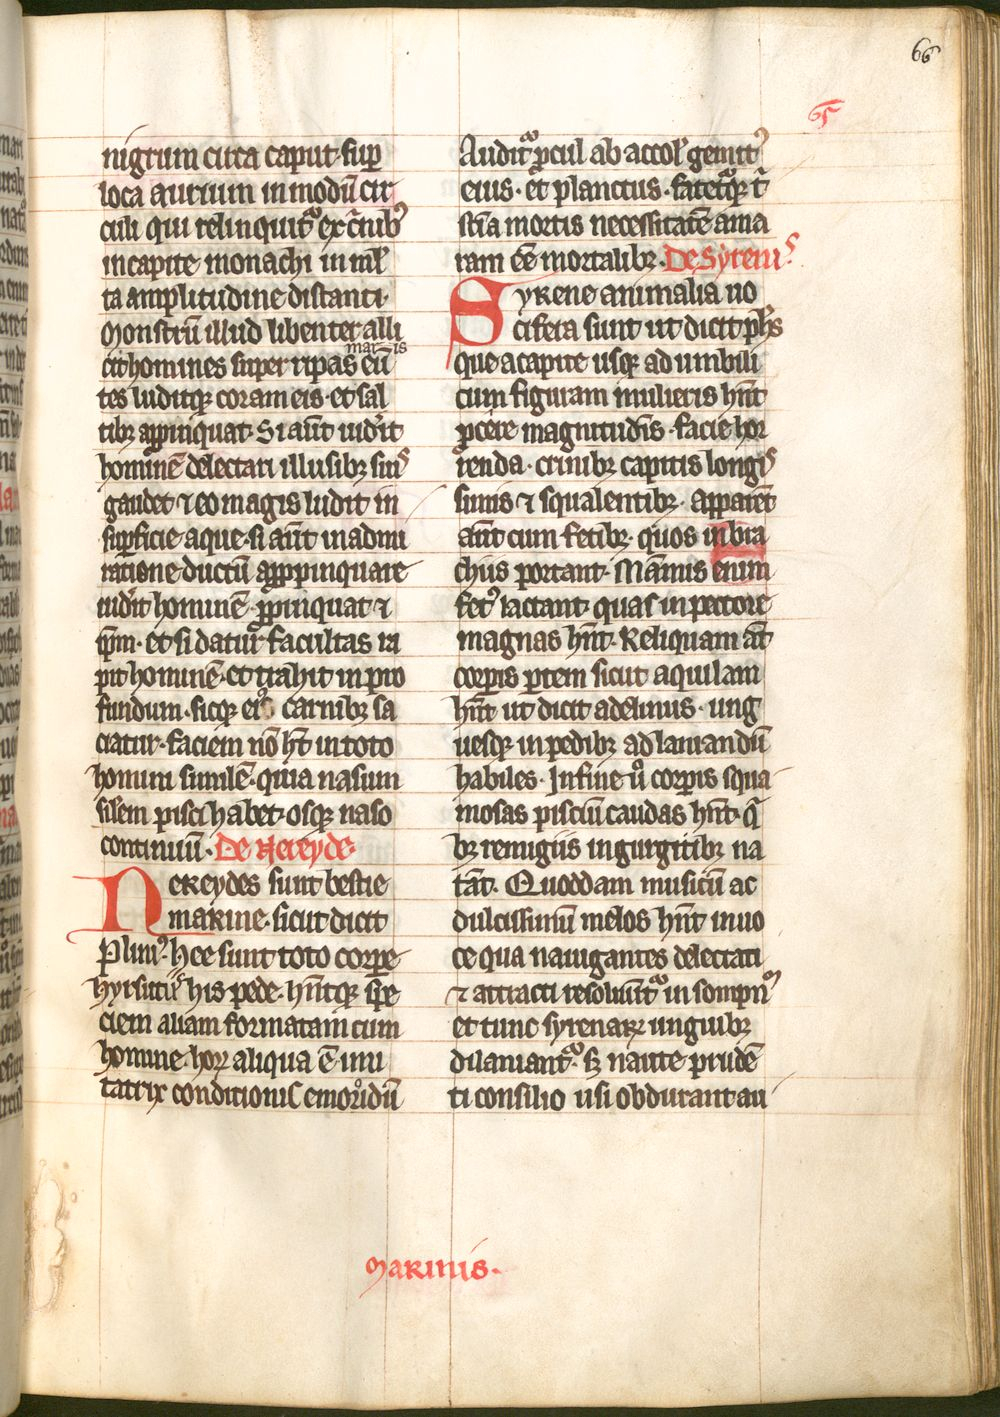 66
nigrum circa caput sup̱
loca aurium in modū cir
culi qui relinquitᷓ ex c̄nibꝰ
in capite monachi in ml̄
ta amplitudine distanti·
Monstrū illud libenter alli
cit homines super ripas maris eū
tes luditqꝫ coram eis· et sal
tibꝫ app̱inquat· Si aūt uid̓it
hominē delectari illusibꝫ suis
gaudet ⁊ eo magis ludit in
sup̱ficie aque· si aūt in admi
ratione ductū app̱ropinquare
uid̓it hominē· p̱pinquat ⁊
ip̄m· et si datur facultas ra
pit hominē· et trahit in pro
fundum· sicqꝫ eiꝰ carnibꝫ sa
ciatur· faciem nō ht̄ in toto
homini similē· quia nasum
silem pisci habet· osqꝫ naso
continuū· De Nereyde·
Nereydes sunt bestie
marine· sicut dicit
Pliniꝰ· hee sunt toto corꝑe
hyrsute his pede· hn̄tqꝫ spe
ciem aliam formatam cum
homine· hoꝝ aliqua ē imi
tatrix conditionis e moriēdū
Auditᷓ ꝓcul ab accol̓ gemitꝰ
eius· et planctus· fatetᷓqꝫ t̄
stīa mortis necessitatē ama
ram eē mortalibꝫ· De Syrenis
Syrene animalia no
cifera sunt ut dicit ph̄s
que a capite usqꝫ ad umbili
cum figuram mulieris hn̄t
ꝓcere magnitudīs· facie hor
renda· crinibꝫ capitis longis
simis ⁊ squalentibꝫ· Apparēt
aūt cum fetibꝫ· quos in bra
chiis portant· Māmis enim
fetꝰ lactant· quas in pectore
magnas hn̄t· Reliquam at̄
corꝑis ꝑtem sicut aquilam
hn̄t ut dicit adelinus· ung
uesqꝫ in pedibꝫ ad laniandū
habiles· In fine ů corꝑis squa
mosas pisciū caudas hn̄t· qͥ
bꝫ remigiis in gurgitibꝫ na
tāt· Quoddam musicū ac
dulcissimū melos hn̄t in uo
ce qua nauigantes delectati
⁊ attracti resoluūtᷓ in sompnū
et tunc syrenaꝝ unguibꝫ
dilaniantᷓ· sꝫ naute prudē
ti consilio usi obdurant au
marinis·